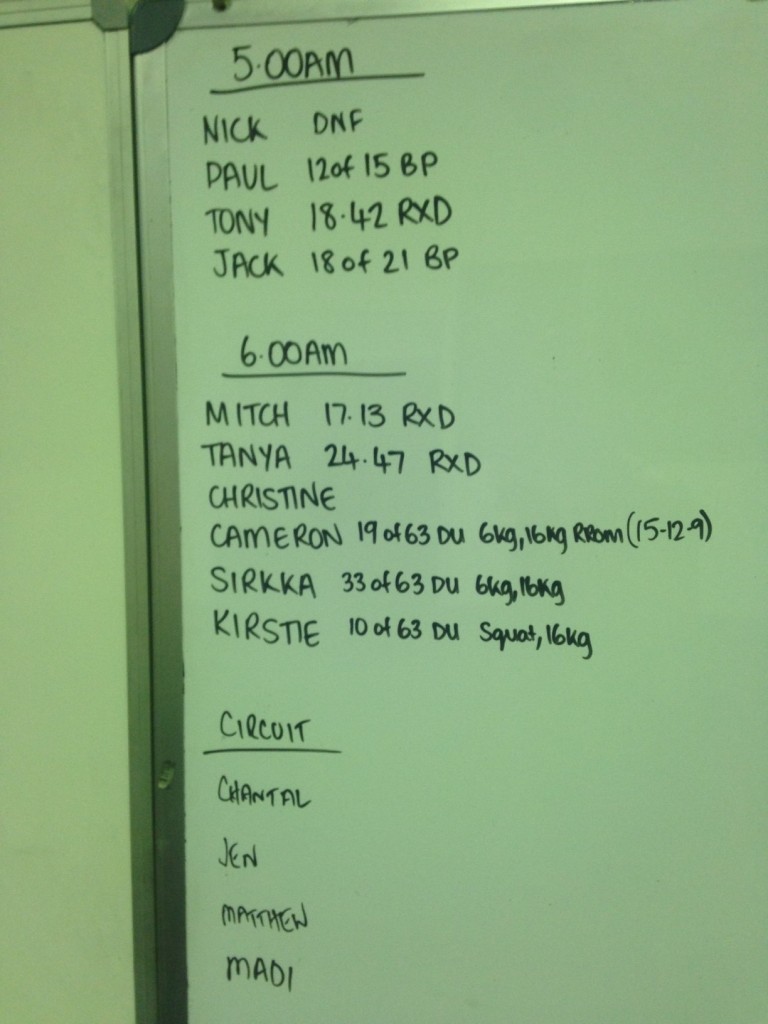 5.00AM
NICK DNF
PAUL 12 of 15 BP
TONY 18.42 RXD
JACK 18 of 21 BP
6.00AM
MITCH 17.13 RXD
TANYA 24.47 RXD
CHRISTINE
CAMERON 19 of 63 DU 6kg, 16kg RROM (15-12-9)
SIRKKA 33 of 63 DU 6kg, 16kg
KIRSTIE 10 of 63 DU Squat, 16kg
CIRCUIT
CHANTAL
JEN
MATTHEW
MADI